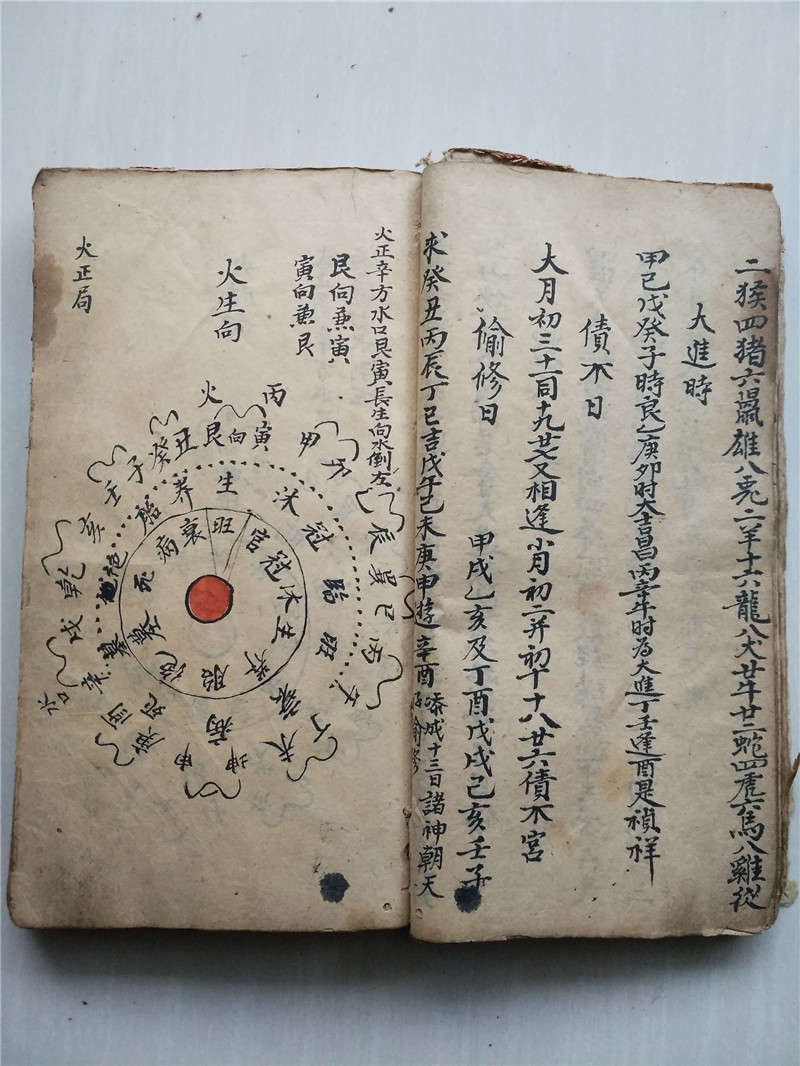 二猴四猪六鼠雄八兎二羊十六龍八犬廿牛廿二蛇四虎六馬八雞從
大進時
甲己戊癸子時良乙庚卯时大吉昌丙辛午时為大進丁壬逢酉是禎祥
債不日
大月初三十一同十九廿七又相逢小月初二并初十十八廿六債不宮
偷修日
甲戌乙亥及丁酉戊戌己亥壬子
求癸丑丙辰丁巳吉戊午己未庚申逰辛酉添成十三日諸神朝天
火正辛方水口艮寅長生向水倒左
艮向兼寅
寅向兼艮
火生向
火正局
丙
火
艮向寅
甲
辰巽巳丙
丁未
坤申
庚
戌乾
壬子癸丑
养生沐冠臨
病
墓
胎
官冠沐生
胎
墓
病衰旺